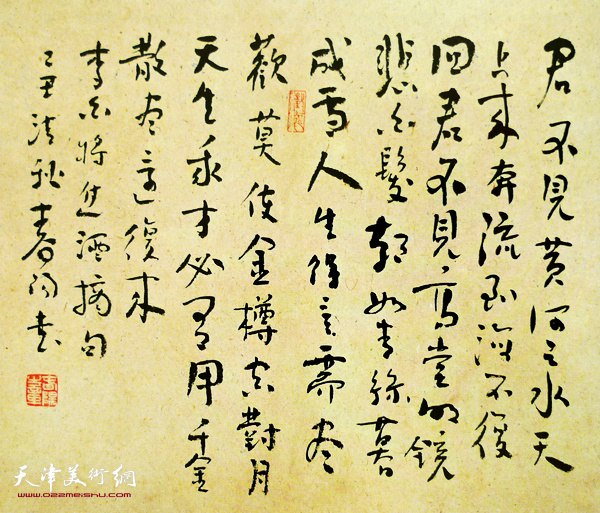 君不見黃河之水天
上來奔流到海不復
回君不見高堂明鏡
悲白髮朝如青絲暮
成雪人生得意需盡
歡莫使金樽空對月
天生我才必有用千金
散盡還復來
李白將進酒摘句
己丑清秋春书
天津美術網
www.022meishu.com